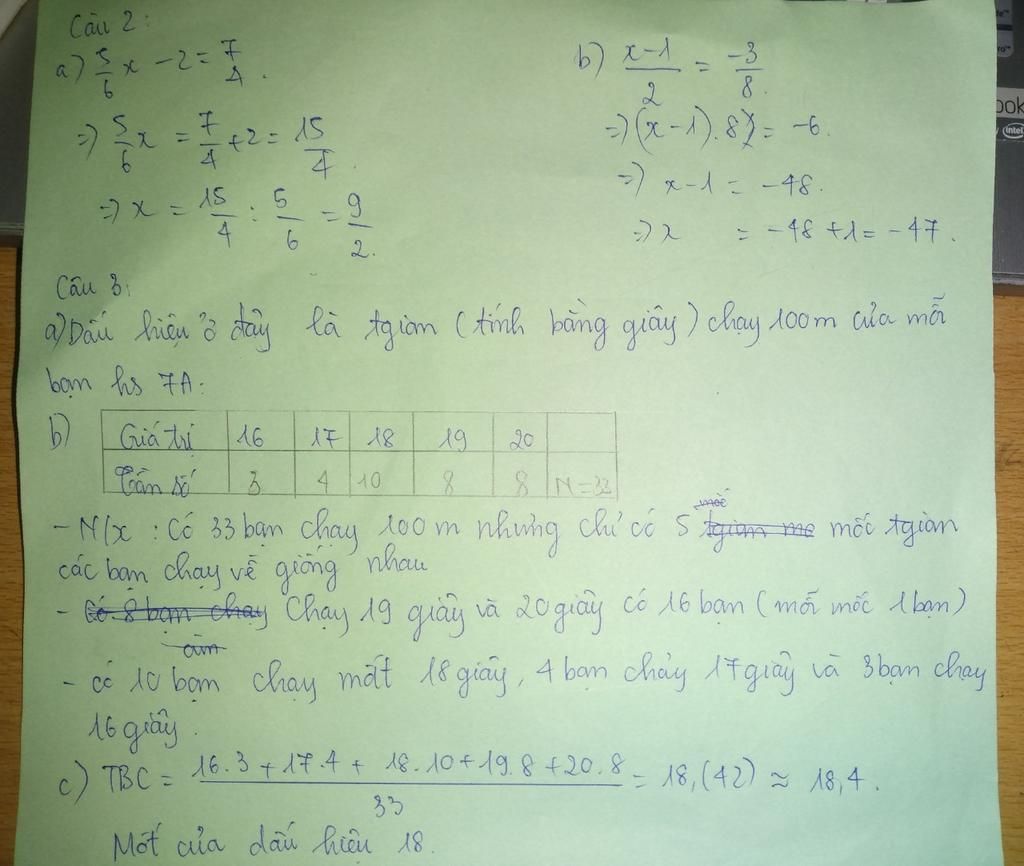 Câu 2:
a) 5/6 x - 2 = 7/4.
=> 5/6 x = 7/4 + 2 = 15/4.
=> x = 15/4 : 5/6 = 9/2.
b) x-1/2 = -3/8.
=> (x-1).8 = -6.
=> x-1 = -48.
=> x = -48+1 = -47.
Câu 3:
a) Dấu hiệu ở đây là tgian (tính bằng giây) chạy 100m của mỗi
bạn hs 7A.
b) Giá trị 16 17 18 19 20
Tần số 3 4 10 8 8 N=33
- N/x: Có 33 bạn chạy 100m nhưng chỉ có 5 mốc tgian
các bạn chạy về giống nhau
- Chạy 19 giây và 20 giây có 16 bạn (mỗi mốc 1 bạn)
- có 10 bạn chạy mất 18 giây, 4 bạn chạy 17 giây và 3 bạn chạy
16 giây.
c) TBC = 16.3+17.4+18.10+19.8+20.8/33 = 18,(42) ≈ 18,4.
Mốt của dấu hiệu 18.
ook
intel